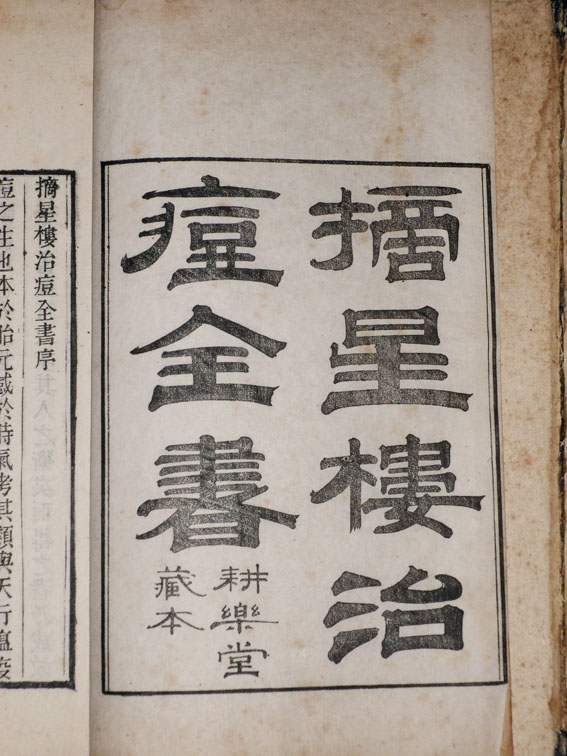 摘星樓治
痘全書
耕樂堂
藏本
摘星樓治痘全書序
痘之性也本於胎元感於時氣考其類與天行瘟疫